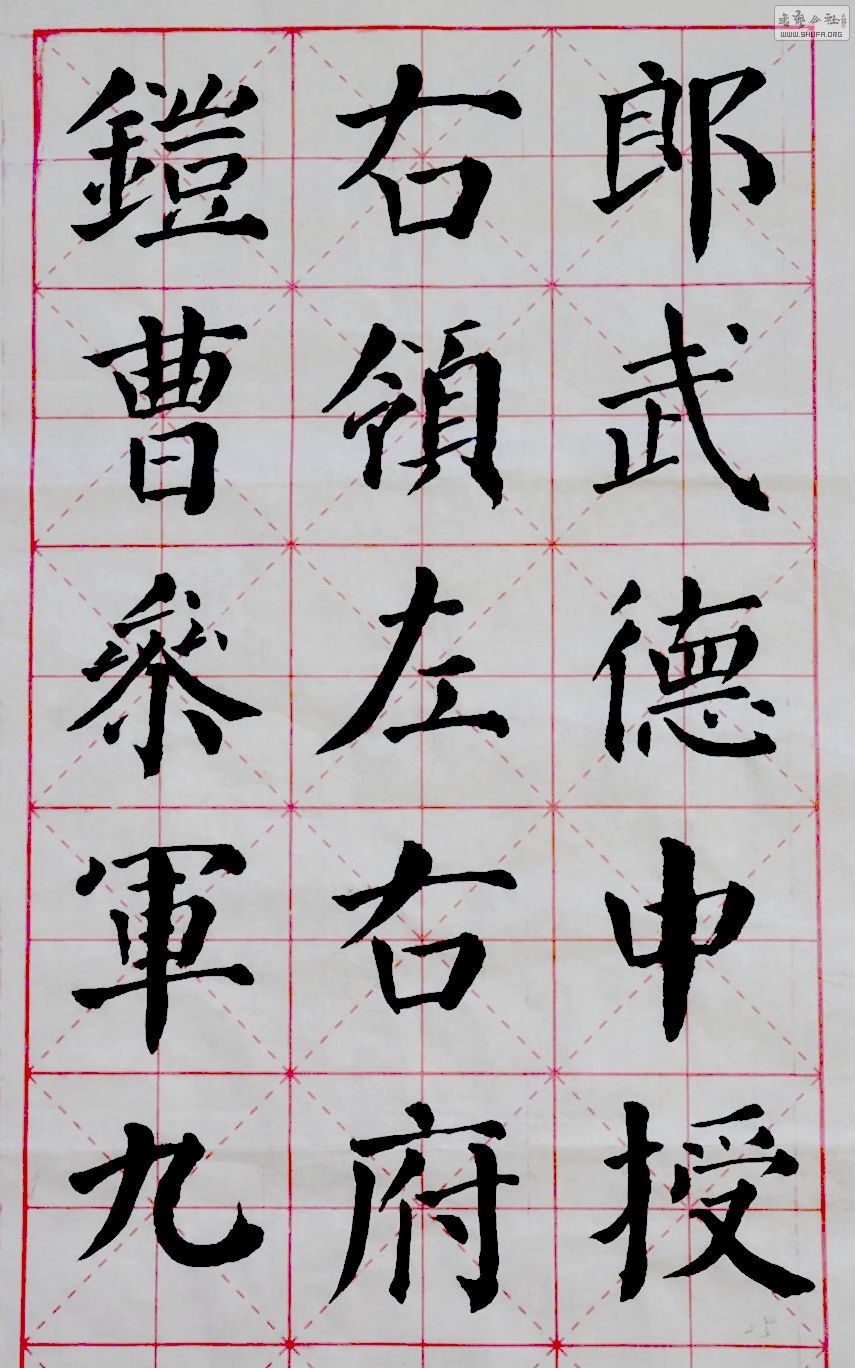 郎武德申授
右領左右府
鎧曹參軍九
WWW.SHUFA.ORG